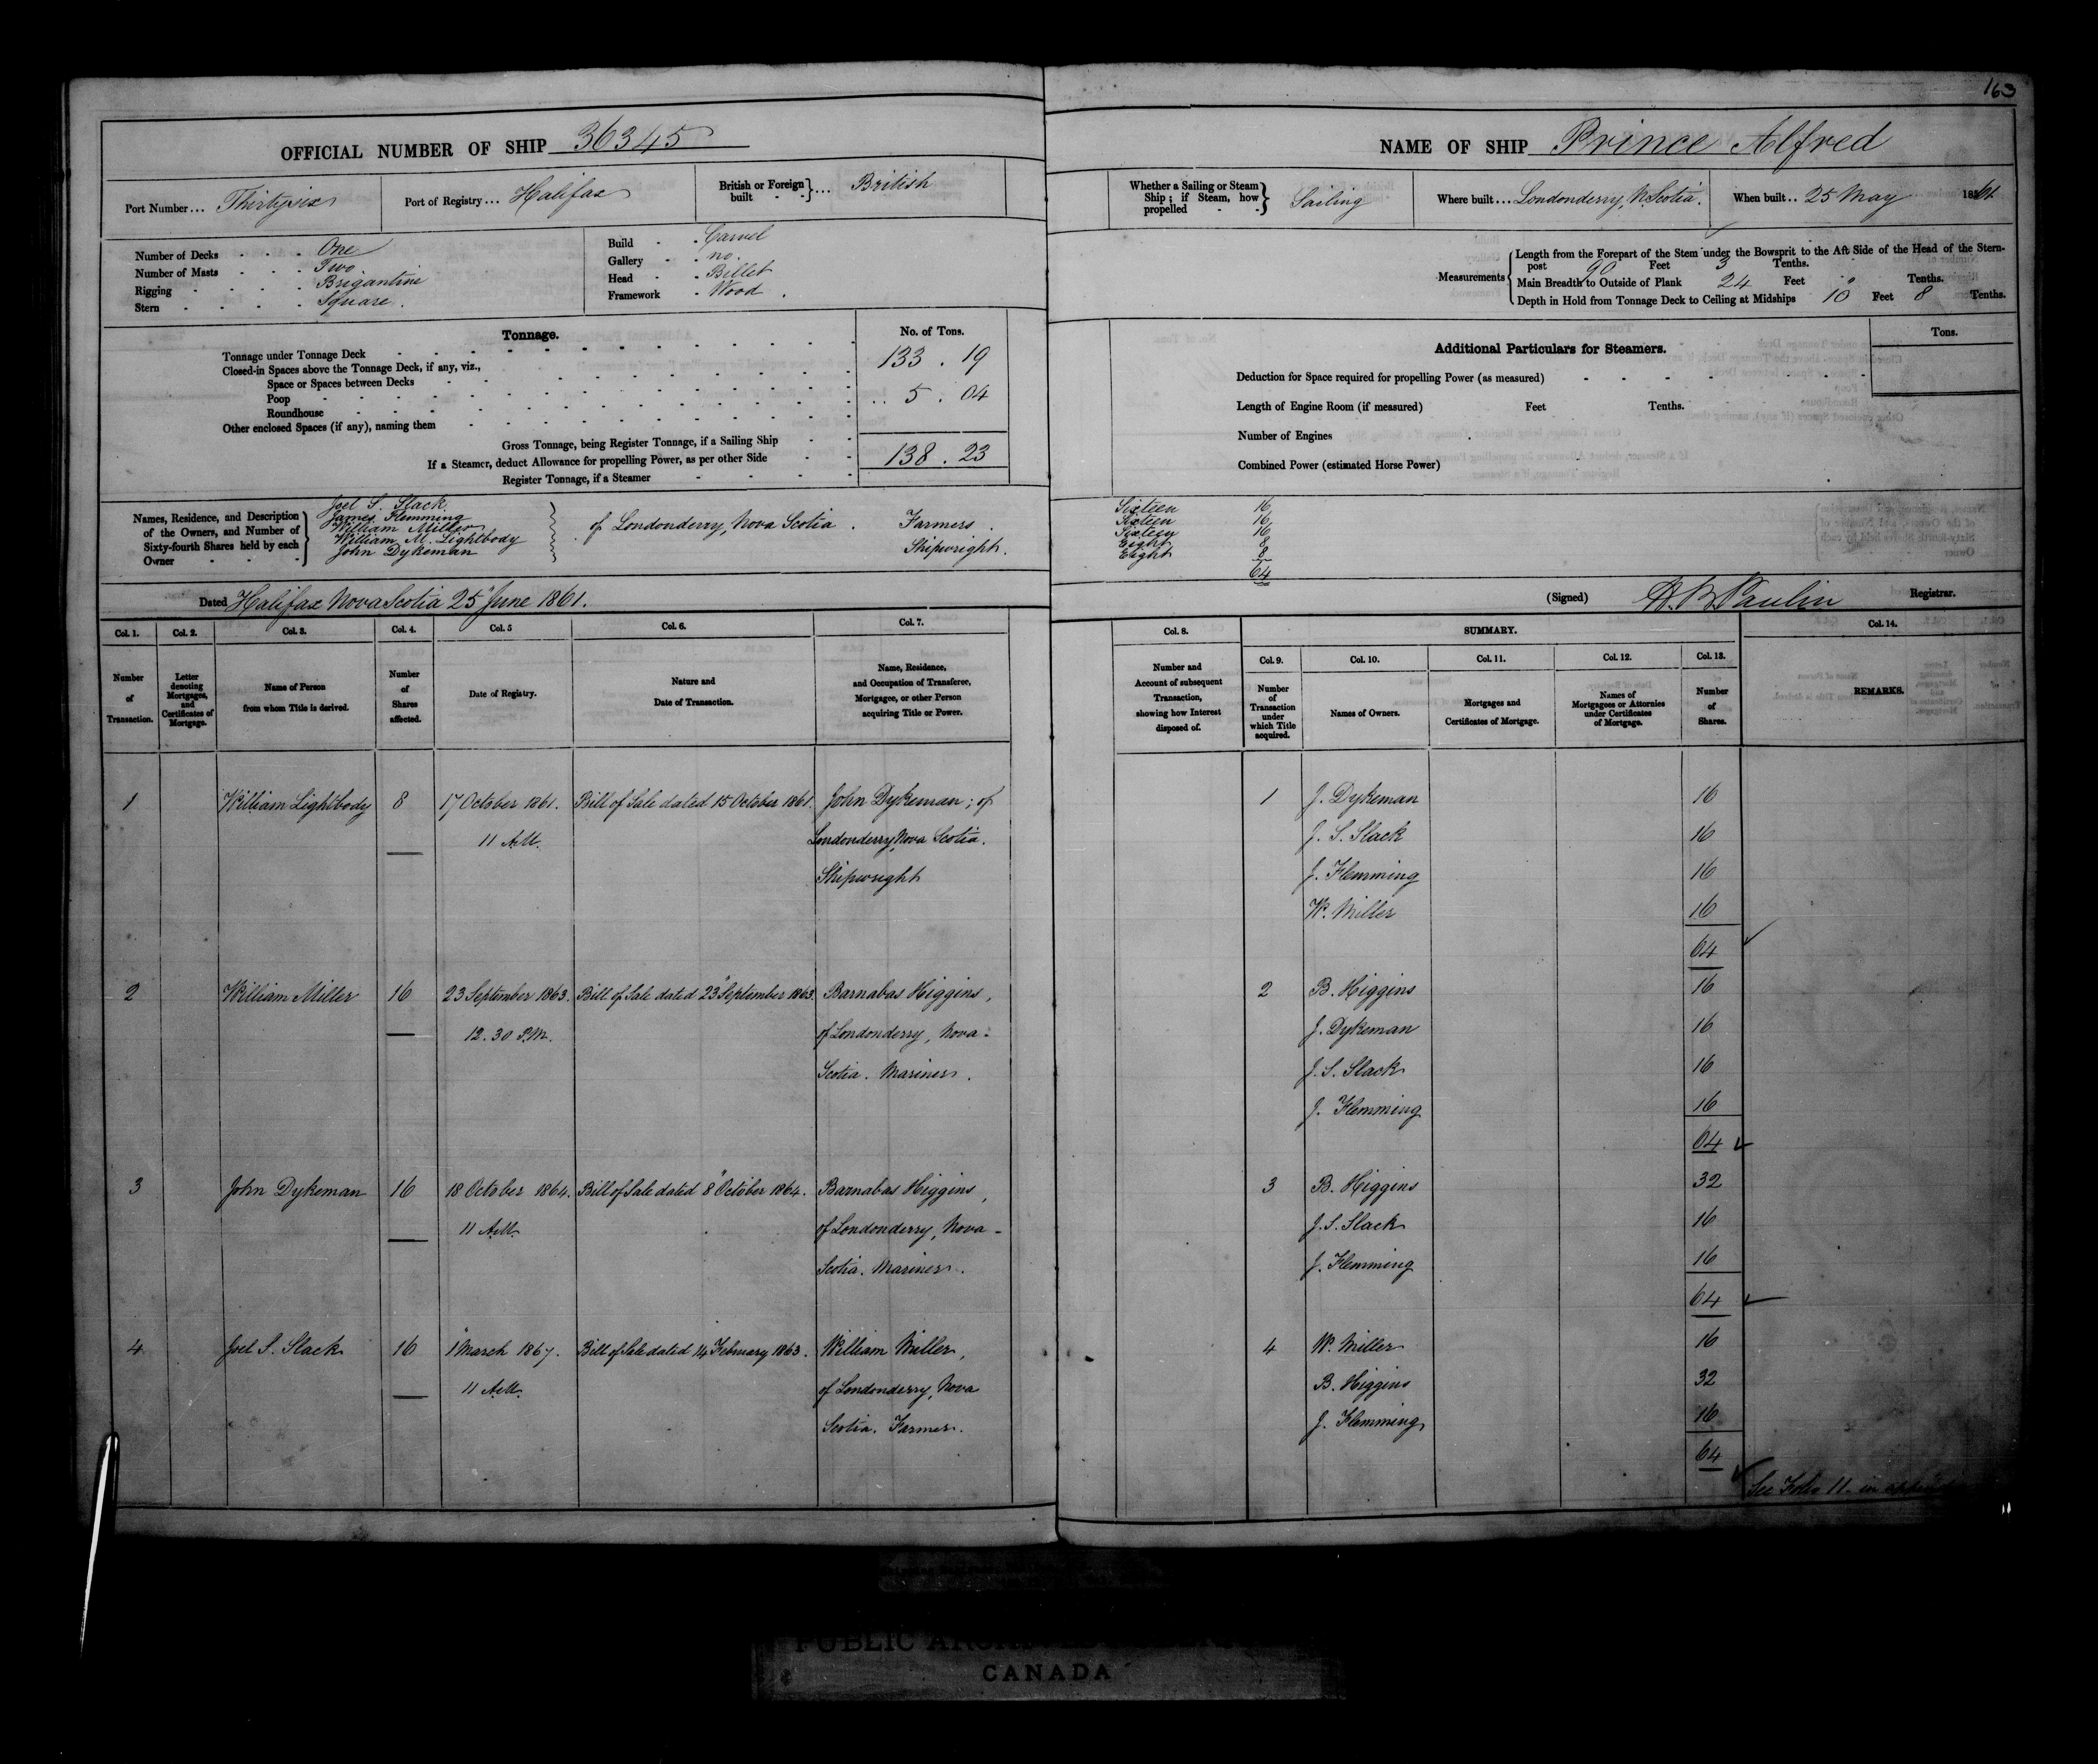 163
OFFICIAL NUMBER OF SHIP 36345
NAME OF SHIP Prince Alfred
Port Number... Thirtysix
Port of Registry... Halifax
British or Foreign built - - }... British
Whether a Sailing or Steam Ship; if Steam, how propelled - - } Sailing
Where built... Londonderry, N. Scotia.
When built.. 25 May 1861
Number of Decks - - - One
Number of Masts - - - Two
Rigging - - - - Brigantine
Stern - - - - Square.
Build - - Carvel
Gallery - - no.
Head - - Billet
Framework - Wood.
Measurements
Length from the Forepart of the Stem under the Bowsprit to the Aft Side of the Head of the Stern-
post 90 Feet 3 Tenths.
Main Breadth to Outside of Plank 24 Feet " Tenths.
Depth in Hold from Tonnage Deck to Ceiling at Midships 10 Feet 8 Tenths.
Tonnage.
No. of Tons.
Tonnage under Tonnage Deck 133 . 19
Closed-in Spaces above the Tonnage Deck, if any, viz.,
Space or Spaces between Decks
Poop 5 . 04
Roundhouse
Other enclosed Spaces (if any), naming them
Gross Tonnage, being Register Tonnage, if a Sailing Ship 138 . 23
If a Steamer, deduct Allowance for propelling Power, as per other Side
Register Tonnage, if a Steamer
Tons.
Additional Particulars for Steamers.
Deduction for Space required for propelling Power (as measured)
Length of Engine Room (if measured) Feet Tenths.
Number of Engines
Combined Power (estimated Horse Power)
Names, Residence, and Description of the Owners, and Number of Sixty-fourth Shares held by each Owner
Joel S. Slack Sixteen 16
James Flemming Sixteen 16
William Miller of Londonderry, Nova Scotia. Farmers. Sixteen 16
William M. Lightbody Eight 8
John Dykeman Shipwright. Eight 8
64
Dated Halifax Nova Scotia 25" June 1861.
(Signed) Paulin Registrar.
Col. 1. Col. 2. Col. 3. Col. 4. Col. 5 Col. 6. Col. 7.
Number of Transaction.
Letter denoting Mortgages, and Certificates of Mortgage.
Name of Person from whom Title is derived.
Number of Shares affected.
Date of Registry.
Nature and Date of Transaction.
Name, Residence, and Occupation of Transferee, Mortgagee, or other Person acquiring Title or Power.
Col. 8. SUMMARY. Col. 14.
Col. 9. Col. 10. Col. 11. Col. 12. Col. 13.
Number and Account of subsequent Transaction, showing how Interest disposed of.
Number of Transaction under which Title acquired.
Names of Owners.
Mortgages and Certificates of Mortgage.
Names of Mortgagees or Attornies under Certificates of Mortgage.
Number of Shares.
REMARKS.
1 William Lightbody 8 17 October 1861. Bill of Sale dated 15 October 1861. John Dykeman; of
11 A.M. Londonderry, Nova Scotia.
Shipwright
1 J. Dykeman 16
J. S. Slack 16
J. Flemming 16
W. Miller 16
64
2 William Miller 16 23 September 1863. Bill of Sale dated 23" September 1863. Barnabas Higgins,
12.30 P.M. of Londonderry, Nova-
Scotia. Mariner.
2 B. Higgins 16
J. Dykeman 16
J. S. Slack 16
J. Flemming 16
64
3 John Dykeman 16 18 October 1864. Bill of Sale dated 8" October 1864. Barnabas Higgins,
11 A.M. of Londonderry, Nova-
Scotia. Mariner.
3 B. Higgins 32
J. S. Slack 16
J. Flemming 16
64
4 Joel S. Slack 16 1" March 1867. Bill of Sale dated 14 February 1863. William Miller,
11 A.M. of Londonderry, Nova
Scotia. Farmer.
4 W. Miller 16
B. Higgins 32
J. Flemming 16
64
See Folio 11. in
PUBLIC
CANADA